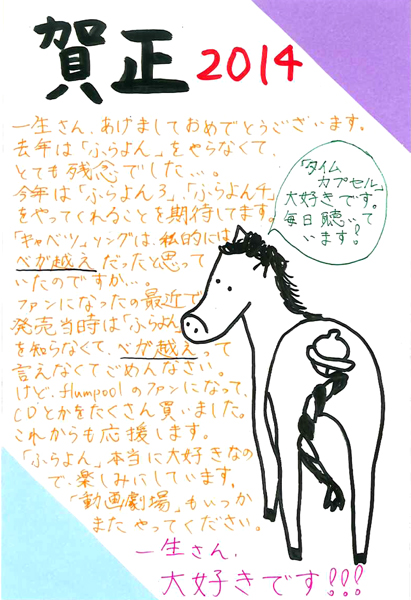 賀正 2014
一生さん、あげましておめでとうございます。
去年は「ふらよん」をやらなくて、
とても残念でした…。
今年は「ふらよん3」、「ふらよん4」
をやってくれることを期待してます。
「キャベツ」ソングは、私的には
ベガ越えだったと思って
いたのですか…。
ファンになったの最近で
発売当時は「ふらよん」
を知らなくて、ベガ越えって
言えなくてごめんなさい。
けど、flumpoolのファンになって、
CDとかをたくさん買いました。
これからも応援します。
「ふらよん」本当に大好きなの
で、楽しみにしています。
「動画劇場」もいつか
またやってください。
一生さん、
大好きです!!!
「タイム
カプセル」
大好きです。
毎日聴いて
います!